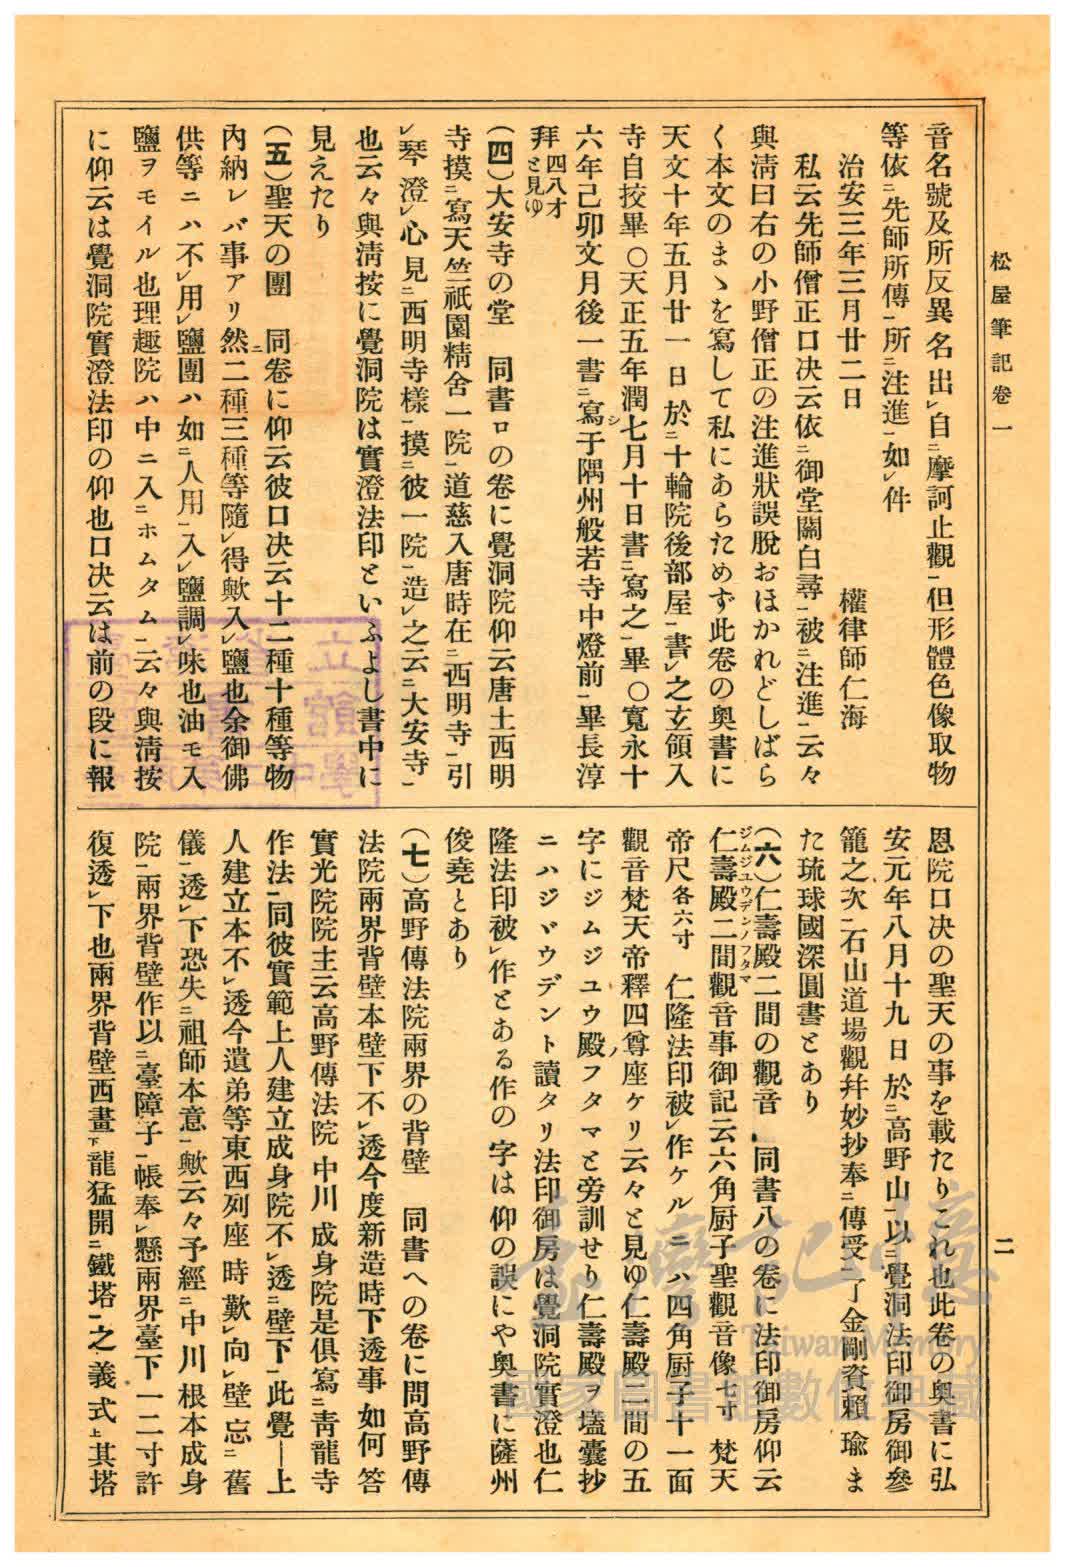 松屋筆記卷一
二
音名號及所反異名出㆑自㆓摩訶止觀㆒但形體色像取物
等依㆓先師所傳㆒所㆓注進㆒如㆑件
治安三年三月廿二日　權律師仁海
私云先師僧正口决云依㆓御堂關白尋㆒被㆓注進㆒云々
與淸曰右の小野僧正の注進狀誤脫おほかれどしばら
く本文のまゝを寫して私にあらためず此卷の奧書に
天文十年五月廿一日於㆓十輪院後部屋㆒書㆑之玄領入
寺自挍畢〇天正五年潤七月十日書㆓寫之㆒畢〇寬永十
六年己卯文月後一書㆓寫シ于隅州般若寺中燈前㆒畢長淳
拜四八才と見ゆ
(四)大安寺の堂　同書ロの卷に覺洞院仰云唐土西明
寺摸㆓寫天竺祇園精舍一院㆒道慈入唐時在㆓西明寺㆒引
㆑琴澄㆑心見㆓西明寺樣㆒摸㆓彼一院㆒造㆑之云㆓大安寺㆒
也云々與淸按に覺洞院は實澄法印といふよし書中に
見えたり
(五)聖天の團　同卷に仰云彼口决云十二種十種等物
內納レバ事アリ然ニ二種三種等隨㆑得歟入㆑鹽也余御佛
供等ニハ不㆑用㆑鹽團ハ如㆓人用㆒入㆑鹽調㆑味也油モ入
鹽ヲモイル也理趣院ハ中ニ入㆓ホムタム㆒云々與淸按
に仰云は覺洞院實澄法印の仰也口决云は前の段に報
恩院口决の聖天の事を載たりこれ也此卷の奧書に弘
安元年八月十九日於㆓高野山㆒以㆓覺洞法印御房御參
籠之次㆒石山道場觀幷妙抄奉㆓傳受㆒了金剛資賴瑜ま
た琉球國深圓書とあり
(六)仁壽殿二間の觀音　同書八の卷に法印御房仰云
仁壽殿二間ジムジユウデンノフタマ觀音事御記云六角厨子聖觀音像七寸梵天
帝尺各六寸　仁隆法印被㆑作ケルニハ四角厨子十一面
觀音梵天帝釋四尊座ケリ云々と見ゆ仁壽殿二間の五
字にジムジユウ殿ノフタマと旁訓せり仁壽殿ヲ壒囊抄
ニハジヾウデント讀タリ法印御房は覺洞院實澄也仁
隆法印被㆑作とある作の字は仰の誤にや奧書に薩州
俊堯とあり
(七)高野傳法院兩界の背壁　同書への卷に問高野傳
法院兩界背壁本壁下不㆑透今度新造時下透事如何答
實光院院主云高野傳法院中川成身院是俱寫㆓靑龍寺
作法㆒同彼實範上人建立成身院不㆑透㆓壁下㆒此覺―上
人建立本不㆑透今遺弟等東西列座時歎㆑向㆑壁忘㆓舊
儀㆒透㆑下恐失㆓祖師本意㆒歟云々予經㆓中川根本成身
院㆒兩界背壁作以㆓臺障子㆒帳奉㆑懸兩界臺下一二寸許
復透㆑下也兩界背壁西畫㆘龍猛開㆓鐵塔㆒之義式㆖其塔
臺灣記憶
Taiwan Memory
國家圖書館數位典藏